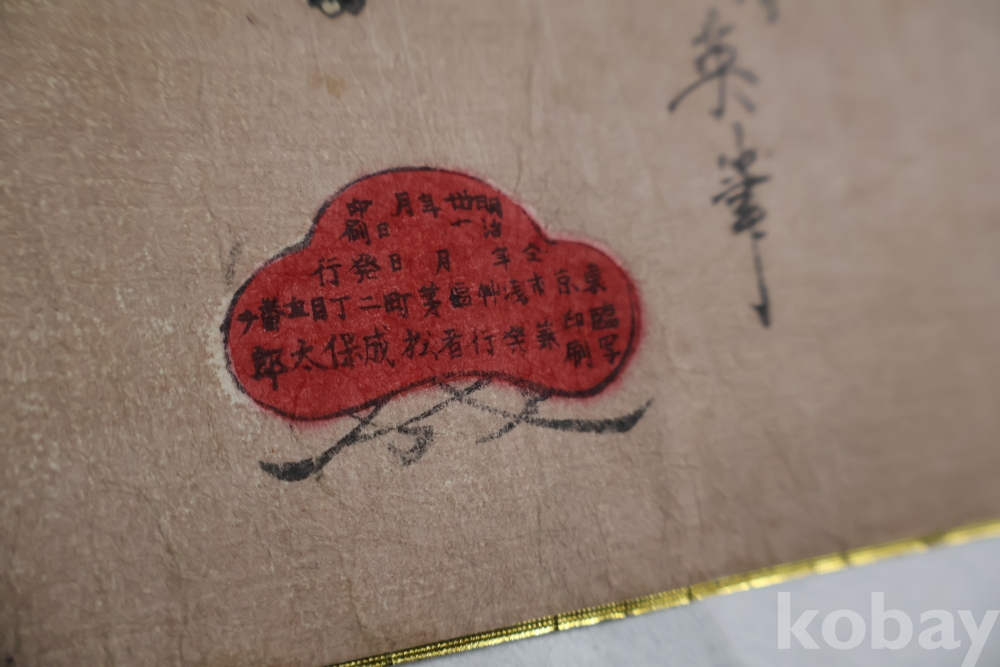 英筆
明治廿 年 月 日印刷
仝 年 月 日発行
東京市浅艸區茅町二丁目五番
臨写印刷兼発行者松成保太郎
kobay